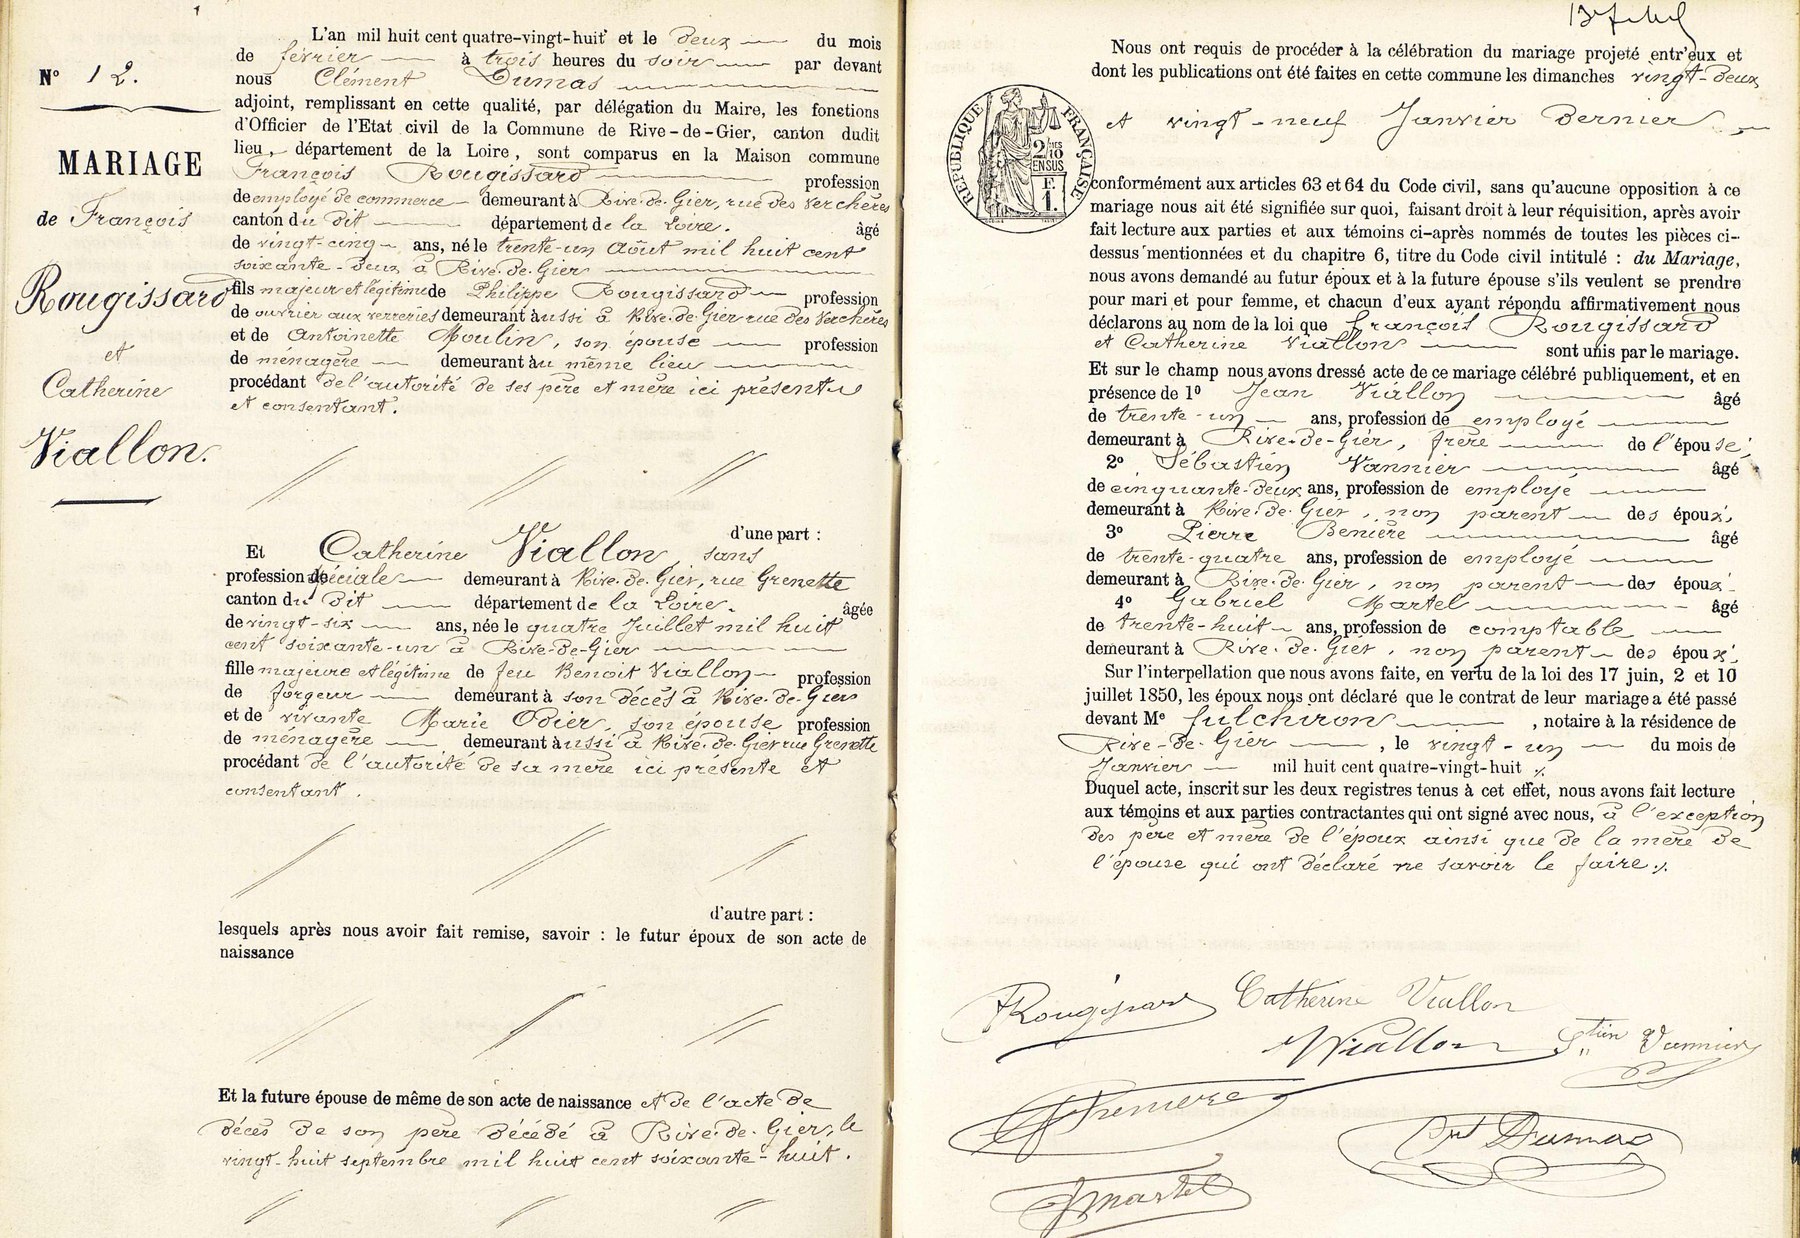 L'an mil huit cent quatre-vingt-huit et le deux du mois
de février à trois heures du soir par devant
nous Clément Dumas
adjoint, remplissant en cette qualité, par délégation du Maire, les fonctions
d'Officier de l'Etat civil de la Commune de Rive-de-Gier, canton dudit
lieu, département de la Loire, sont comparus en la Maison commune
François Rougissard profession
de employé de commerce demeurant à Rive-de-Gier, rue des Verchères
canton du dit département de la Loire. âgé
de vingt-cinq ans, né le trente-un Août mil huit cent
soixante-deux à Rive-de-Gier
fils majeur et légitime de Philippe Rougissard profession
de ouvrier aux verreries demeurant aussi à Rive-de-Gier rue des Verchères
et de Antoinette Moulin, son épouse profession
de ménagère demeurant au même lieu
procédant de l'autorité de ses père et mère ici présents
et consentant.
N° 12.
MARIAGE
de François
Rougissard
et
Catherine
Viallon.
d'une part :
Et Catherine Viallon, sans
profession spéciale demeurant à Rive-de-Gier, rue Grenette
canton du dit département de la Loire. âgée
de vingt-six ans, née le quatre Juillet mil huit
cent soixante-un à Rive-de-Gier
fille majeure et légitime de feu Benoit Viallon profession
de forgeur demeurant à son décès à Rive-de-Gier
et de vivante Marie Odier, son épouse profession
de ménagère demeurant aussi à Rive-de-Gier rue Grenette
procédant de l'autorité de sa mère ici présente et
consentant.
d'autre part :
lesquels après nous avoir fait remise, savoir : le futur époux de son acte de
naissance
Et la future épouse de même de son acte de naissance et de l'acte de
décès de son père décédé à Rive-de-Gier, le
vingt-huit septembre mil huit cent soixante-huit.
Nous ont requis de procéder à la célébration du mariage projeté entr'eux et
dont les publications ont été faites en cette commune les dimanches vingt-deux
et vingt-neuf Janvier dernier
RÉPUBLIQUE FRANÇAISE
2/10
EN SUS
F.
1.
conformément aux articles 63 et 64 du Code civil, sans qu'aucune opposition à ce
mariage nous ait été signifiée sur quoi, faisant droit à leur réquisition, après avoir
fait lecture aux parties et aux témoins ci-après nommés de toutes les pièces ci-
dessus mentionnées et du chapitre 6, titre du Code civil intitulé : du Mariage,
nous avons demandé au futur époux et à la future épouse s'ils veulent se prendre
pour mari et pour femme, et chacun d'eux ayant répondu affirmativement nous
déclarons au nom de la loi que François Rougissard
et Catherine Viallon sont unis par le mariage.
Et sur le champ nous avons dressé acte de ce mariage célébré publiquement, et en
présence de 1° Jean Viallon âgé
de trente-un ans, profession de employé
demeurant à Rive-de-Gier, frère de l'épouse,
2° Sébastien Vannier âgé
de cinquante-deux ans, profession de employé
demeurant à Rive-de-Gier, non parent des époux,
3° Pierre Benière âgé
de trente-quatre ans, profession de employé
demeurant à Rive-de-Gier, non parent des époux
4° Gabriel Martel âgé
de trente-huit ans, profession de comptable
demeurant à Rive-de-Gier, non parent des époux.
Sur l'interpellation que nous avons faite, en vertu de la loi des 17 juin, 2 et 10
juillet 1850, les époux nous ont déclaré que le contrat de leur mariage a été passé
devant Me Fulchiron, notaire à la résidence de
Rive-de-Gier, le vingt-un du mois de
Janvier mil huit cent quatre-vingt-huit
Duquel acte, inscrit sur les deux registres tenus à cet effet, nous avons fait lecture
aux témoins et aux parties contractantes qui ont signé avec nous, à l'exception
des père et mère de l'époux ainsi que de la mère de
l'épouse qui ont déclaré ne savoir le faire.
Rougissard Catherine Viallon
Viallon Stien Vannier
Benière
Dumas
Martel